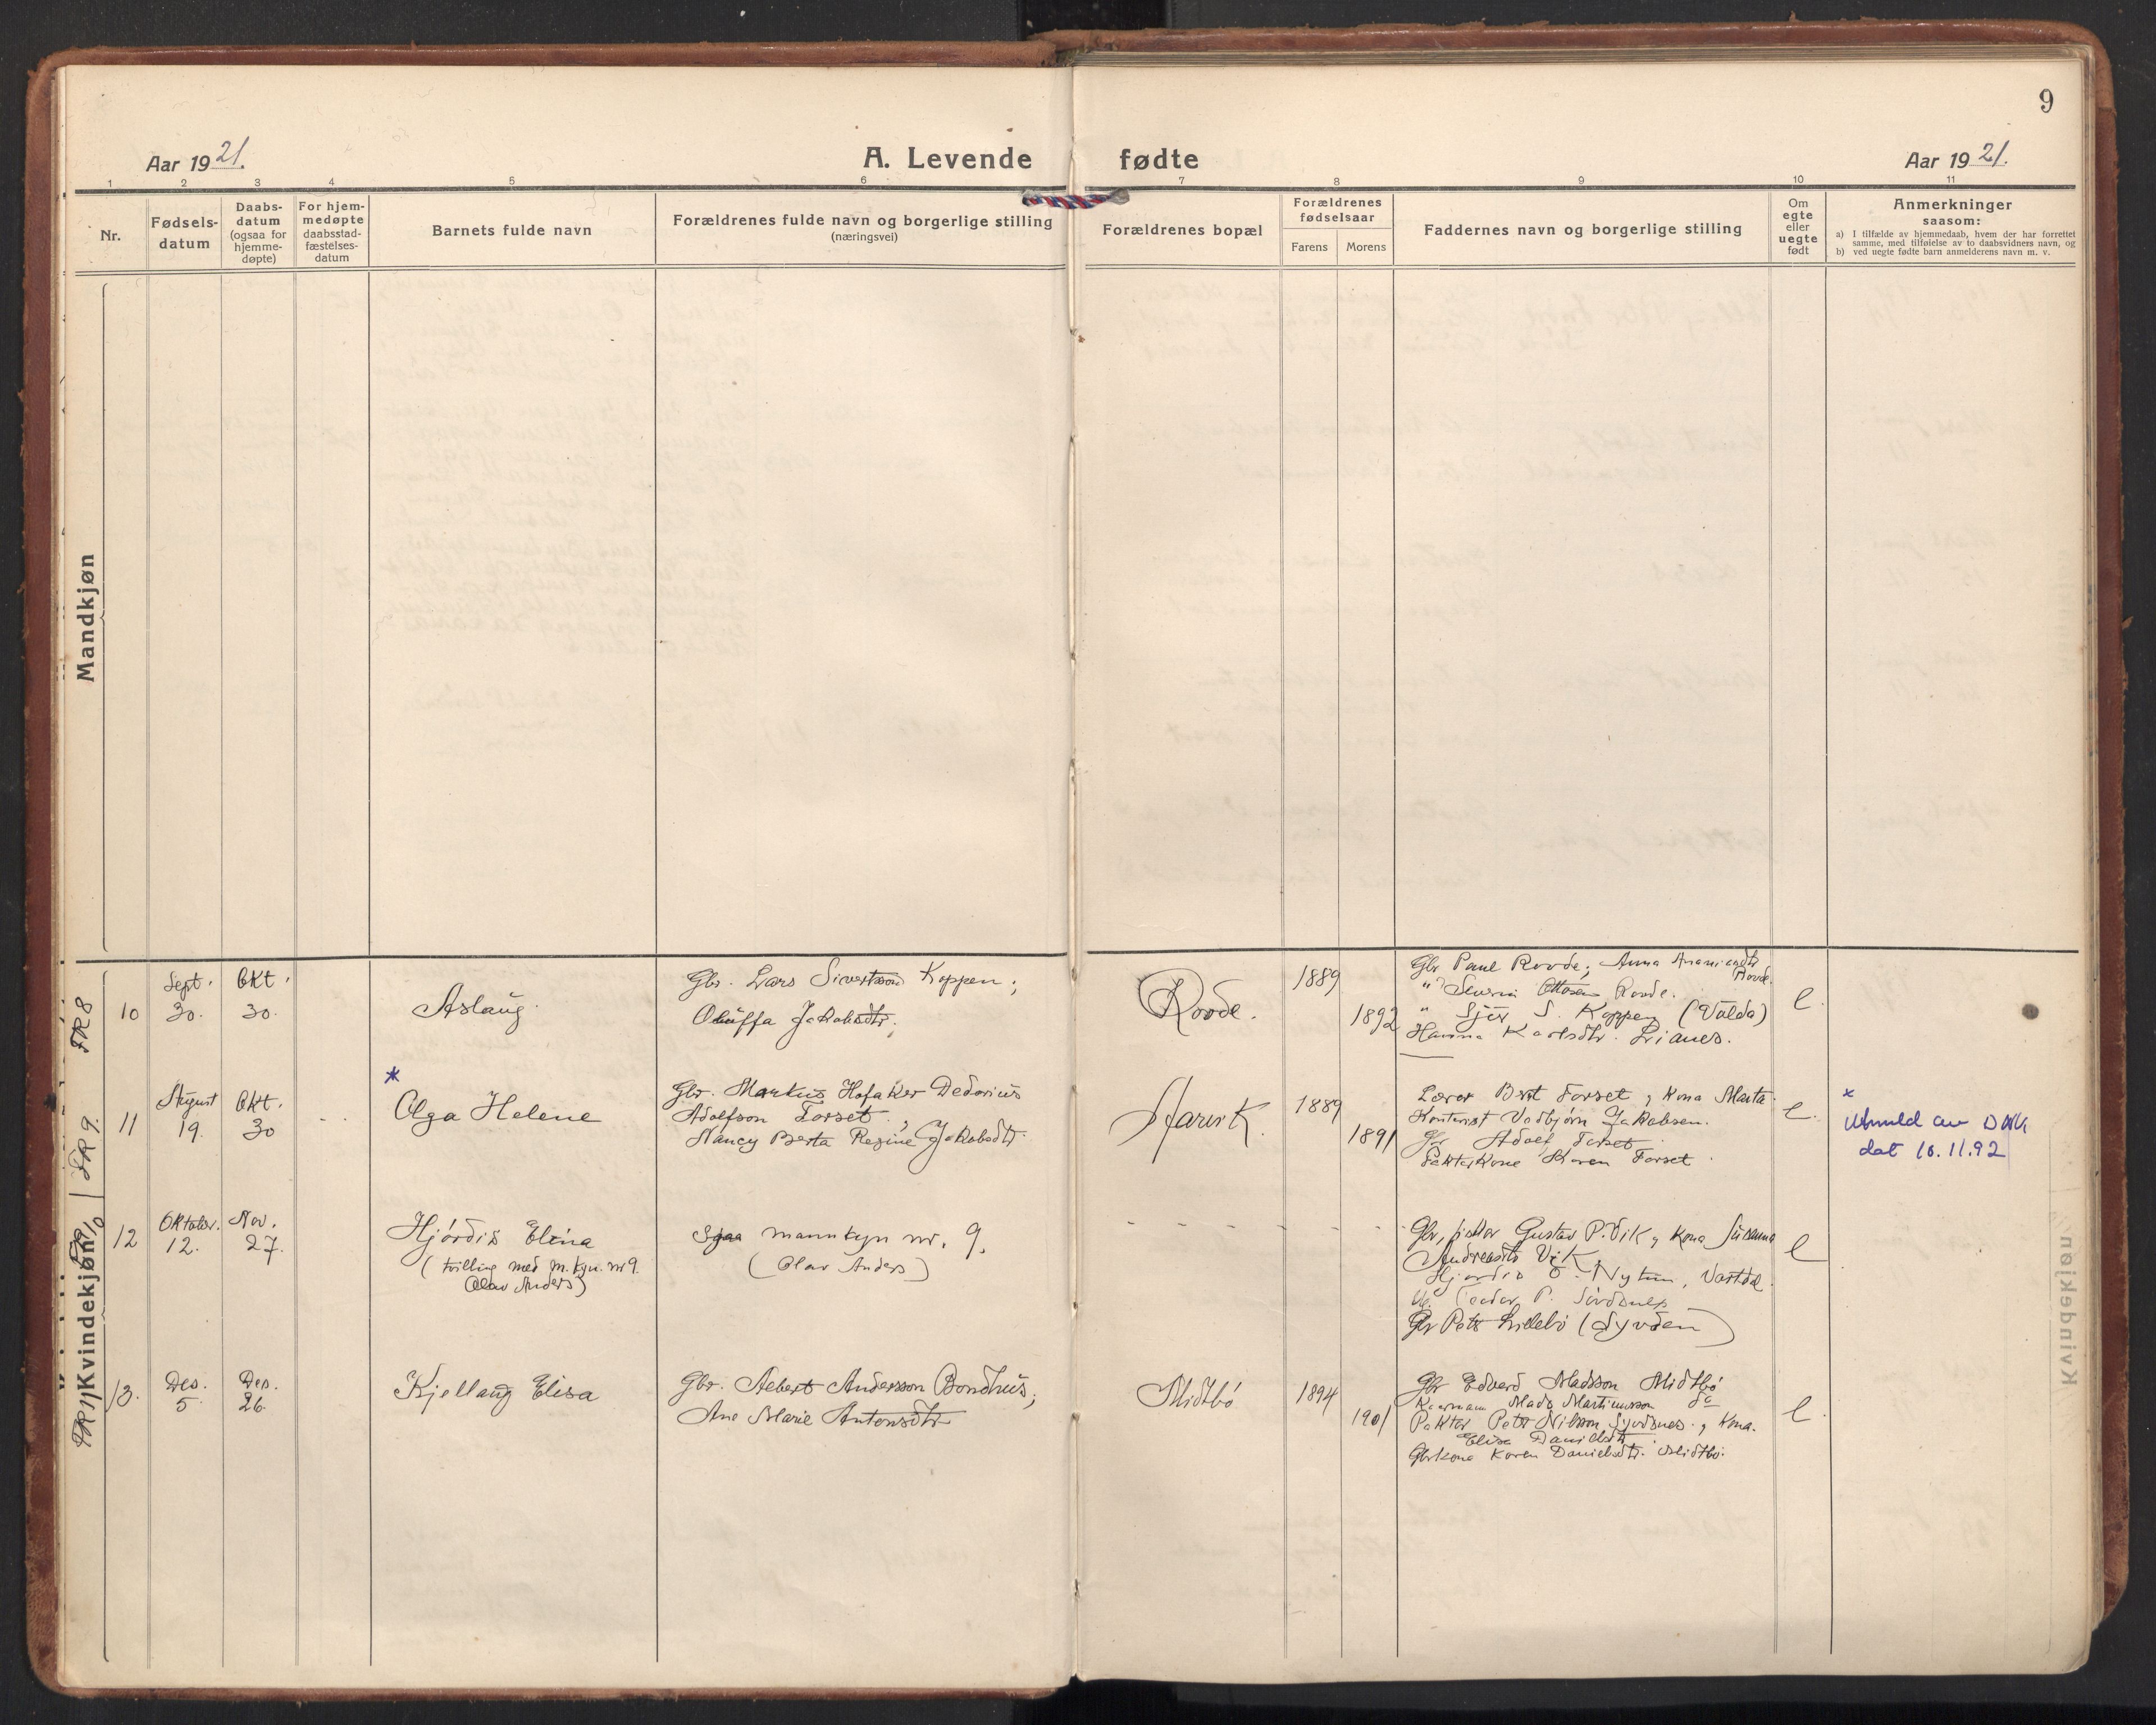 9
Aar 1921.
A. Levende fødte
Aar 1921.
1 2 3 4 5 6 7 8 9 10 11
Nr.
Fødsels-
datum
Daabs-
datum
(ogsaa for
hjemme-
døpte)
For hjem-
medøpte
daabsstad-
fæstelses-
datum
Barnets fulde navn
Forældrenes fulde navn og borgerlige stilling
(næringsvei)
Forældrenes bopæl
Forældrenes
fødselsaar
Farens Morens
Faddernes navn og borgerlige stilling
Om
egte
eller
uegte
født
Anmerkninger
saasom:
a) I tilfælde av hjemmedaab, hvem der har forrettet
samme, med tilføielse av to daabsvidners navn, og
b) ved uegte fødte barn anmelderens navn m. v.
Mandkjøn
Kvindekjøn
FR 8
10
Sept.
30.
Okt.
30.
Aslaug
Gbr. Lars Sivertson Koppen;
Jakobsdtr.
Rovde.
1889
1892
Gbr Paul Rovde; Anna
Rovde.
" Severin Ottosen Rovde.
" S. Koppen (Volda)
Hanna Karlsdtr.
e.
FR 9
11
August
19.
Okt.
30
*
Olga Helene
Gbr. Markus Hofaker Dedorius
Adolfson Forset.;
Nancy Berta Regine Jakobsdtr.
Aarvik.
1889
1891
Lærer Forset, kona Marta
Jakobsen.
Gbr Adolf Forset
Karen Forset
e.
*
Utmeld av DNK
dat 10.11.92
FR 10
12
Oktober.
12.
Nov.
27.
Hjørdis Elina
(tvilling med m.kjn. nr 9.
Olav Anders)
Sjaa mannkyn nr. 9.
(Olav Anders)
Gbr, fisker Gustav P. Vik, kona Susanna
Andreasdtr Vik.
Hjørdis Nytun, Vartdal.
P.
Gbr Petter Lillebø (Syvden)
e
FR 11
13.
Des.
5.
Des.
26.
Kjellaug Elisa
Gbr. Albert Andersson Bondhus;
Ane Marie Antonsdtr
Midtbø
1894
1901
Gbr Edvard Madsson Midtbø
Mads Martinusson do
Petter Nilsson Syvdsnes, kona
Elisa Danielsdtr.
Gbrkona Karen Danielsdtr. Midtbø.
e.